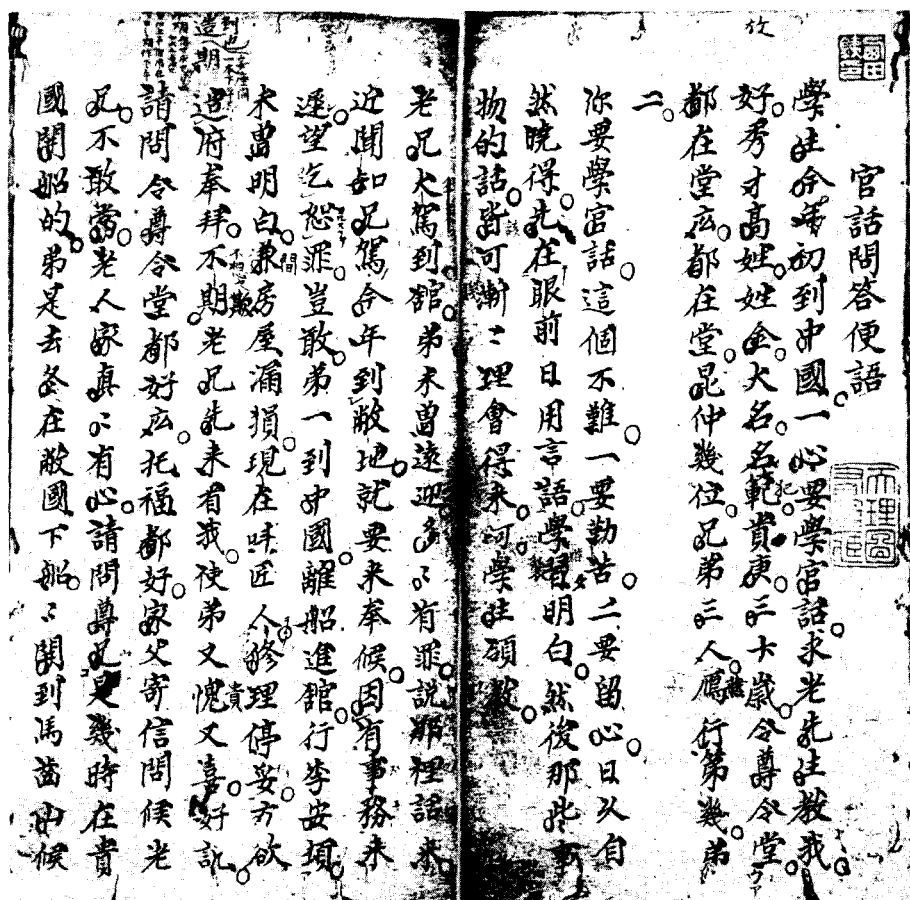 官話問答便語
學生今年初到中國一心要學官話求老先生教我
好秀才高姓姓金大名名範貴庚三十歲令尊令堂
都在堂庅都在堂昆仲幾位兄弟三人鴈行第幾弟
二
你要學官話這個不難一要勤苦二要留心日久自
然曉得先在眼前日用言語學習明白然後那些事
物的話皆可漸〻理會得來阿學生領教
老兄大駕到舘弟未曾遠迎多〻有罪説那裡話來
近聞知兄駕今年到敝地就要来奉候因有事務来
遲望乞恕罪豈敢弟一到中國離船進舘行李安頓
未曾明白兼房屋漏損現在呌匠人修理停妥方欲
造府奉拜不期老兄先来看我使弟又愧又喜好説
請問令尊令堂都好庅托福都好家父寄信問候老
兄不敢當老人家真〻有心請問尊兄是幾時在貴
國開船的弟是去冬在敝國下船〻開到馬齒山候